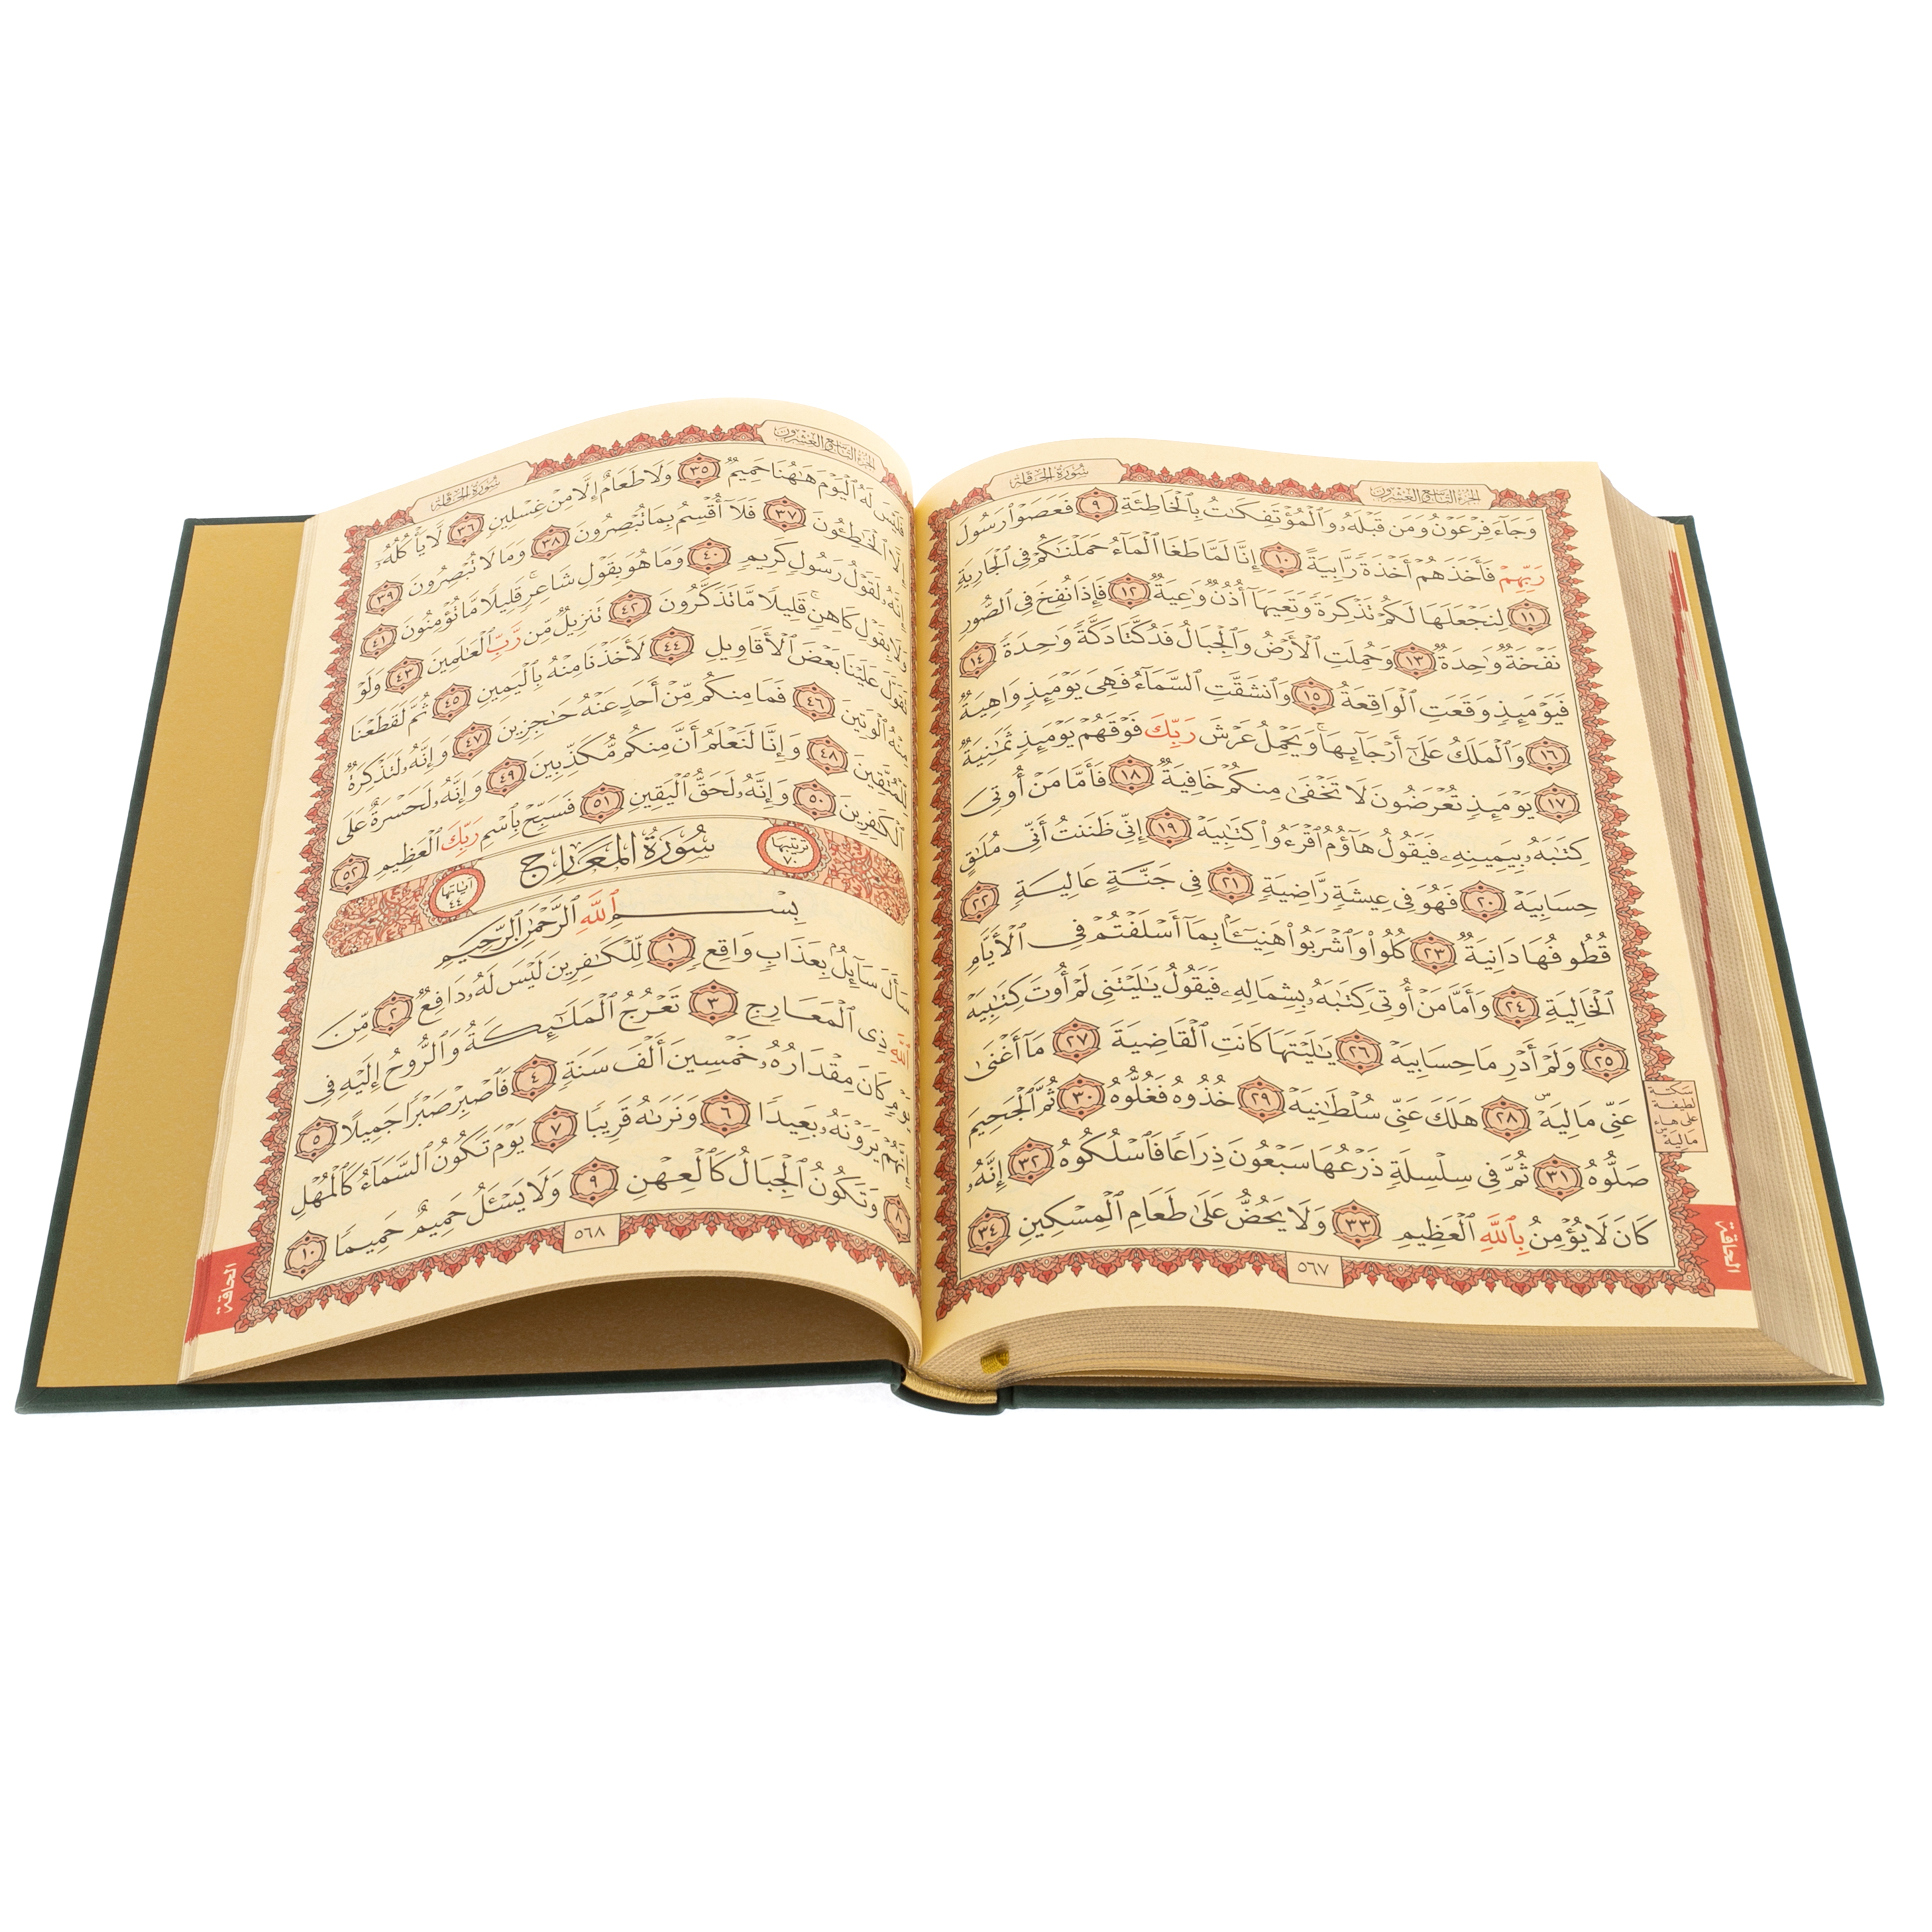 سُورَةُ الْحَاقَّةِ
الجزء التاسع والعشرون
وَجَآءَ فِرْعَوْنُ وَمَن قَبْلَهُۥ وَٱلْمُؤْتَفِكَـٰتُ بِٱلْخَاطِئَةِ ٩ فَعَصَوْا۟ رَسُولَ
رَبِّهِمْ فَأَخَذَهُمْ أَخْذَةً رَّابِيَةً ١٠ إِنَّا لَمَّا طَغَا ٱلْمَآءُ حَمَلْنَـٰكُمْ فِى ٱلْجَارِيَةِ
١١ لِنَجْعَلَهَا لَكُمْ تَذْكِرَةً وَتَعِيَهَآ أُذُنٌ وَٰعِيَةٌ ١٢ فَإِذَا نُفِخَ فِى ٱلصُّورِ
نَفْخَةٌ وَٰحِدَةٌ ١٣ وَحُمِلَتِ ٱلْأَرْضُ وَٱلْجِبَالُ فَدُكَّتَا دَكَّةً وَٰحِدَةً ١٤
فَيَوْمَئِذٍ وَقَعَتِ ٱلْوَاقِعَةُ ١٥ وَٱنشَقَّتِ ٱلسَّمَآءُ فَهِىَ يَوْمَئِذٍ وَاهِيَةٌ
١٦ وَٱلْمَلَكُ عَلَىٰٓ أَرْجَآئِهَا ۚ وَيَحْمِلُ عَرْشَ رَبِّكَ فَوْقَهُمْ يَوْمَئِذٍ ثَمَـٰنِيَةٌ
١٧ يَوْمَئِذٍ تُعْرَضُونَ لَا تَخْفَىٰ مِنكُمْ خَافِيَةٌ ١٨ فَأَمَّا مَنْ أُوتِىَ
كِتَـٰبَهُۥ بِيَمِينِهِۦ فَيَقُولُ هَآؤُمُ ٱقْرَءُوا۟ كِتَـٰبِيَهْ ١٩ إِنِّى ظَنَنتُ أَنِّى مُلَـٰقٍ
حِسَابِيَهْ ٢٠ فَهُوَ فِى عِيشَةٍ رَّاضِيَةٍ ٢١ فِى جَنَّةٍ عَالِيَةٍ ٢٢
قُطُوفُهَا دَانِيَةٌ ٢٣ كُلُوا۟ وَٱشْرَبُوا۟ هَنِيٓـًٔۢا بِمَآ أَسْلَفْتُمْ فِى ٱلْأَيَّامِ
ٱلْخَالِيَةِ ٢٤ وَأَمَّا مَنْ أُوتِىَ كِتَـٰبَهُۥ بِشِمَالِهِۦ فَيَقُولُ يَـٰلَيْتَنِى لَمْ أُوتَ كِتَـٰبِيَهْ
٢٥ وَلَمْ أَدْرِ مَا حِسَابِيَهْ ٢٦ يَـٰلَيْتَهَا كَانَتِ ٱلْقَاضِيَةَ ٢٧ مَآ أَغْنَىٰ
عَنِّى مَالِيَهْ ۜ ٢٨ هَلَكَ عَنِّى سُلْطَـٰنِيَهْ ٢٩ خُذُوهُ فَغُلُّوهُ ٣٠ ثُمَّ ٱلْجَحِيمَ
صَلُّوهُ ٣١ ثُمَّ فِى سِلْسِلَةٍ ذَرْعُهَا سَبْعُونَ ذِرَاعًا فَٱسْلُكُوهُ ٣٢ إِنَّهُۥ
كَانَ لَا يُؤْمِنُ بِٱللَّهِ ٱلْعَظِيمِ ٣٣ وَلَا يَحُضُّ عَلَىٰ طَعَامِ ٱلْمِسْكِينِ ٣٤
سكتة
لطيفة
على هاء
ماليه
٥٦٧
الحاقة
الجزء التاسع والعشرون
سُورَةُ الْحَاقَّةِ
فَلَيْسَ لَهُ ٱلْيَوْمَ هَـٰهُنَا حَمِيمٌ ٣٥ وَلَا طَعَامٌ إِلَّا مِنْ غِسْلِينٍ ٣٦ لَّا يَأْكُلُهُۥٓ
إِلَّا ٱلْخَـٰطِـُٔونَ ٣٧ فَلَآ أُقْسِمُ بِمَا تُبْصِرُونَ ٣٨ وَمَا لَا تُبْصِرُونَ ٣٩
إِنَّهُۥ لَقَوْلُ رَسُولٍ كَرِيمٍ ٤٠ وَمَا هُوَ بِقَوْلِ شَاعِرٍ ۚ قَلِيلًا مَّا تُؤْمِنُونَ ٤١
وَلَا بِقَوْلِ كَاهِنٍ ۚ قَلِيلًا مَّا تَذَكَّرُونَ ٤٢ تَنزِيلٌ مِّن رَّبِّ ٱلْعَـٰلَمِينَ ٤٣ وَلَوْ
تَقَوَّلَ عَلَيْنَا بَعْضَ ٱلْأَقَاوِيلِ ٤٤ لَأَخَذْنَا مِنْهُ بِٱلْيَمِينِ ٤٥ ثُمَّ لَقَطَعْنَا
مِنْهُ ٱلْوَتِينَ ٤٦ فَمَا مِنكُم مِّنْ أَحَدٍ عَنْهُ حَـٰجِزِينَ ٤٧ وَإِنَّهُۥ لَتَذْكِرَةٌ
لِّلْمُتَّقِينَ ٤٨ وَإِنَّا لَنَعْلَمُ أَنَّ مِنكُم مُّكَذِّبِينَ ٤٩ وَإِنَّهُۥ لَحَسْرَةٌ عَلَى
ٱلْكَـٰفِرِينَ ٥٠ وَإِنَّهُۥ لَحَقُّ ٱلْيَقِينِ ٥١ فَسَبِّحْ بِٱسْمِ رَبِّكَ ٱلْعَظِيمِ ٥٢
ترتيبها ٧٠ سُورَةُ الْمَعَارِجِ آياتها ٤٤
بِسْمِ ٱللَّهِ ٱلرَّحْمَـٰنِ ٱلرَّحِيمِ
سَأَلَ سَآئِلٌۢ بِعَذَابٍ وَاقِعٍ ١ لِّلْكَـٰفِرِينَ لَيْسَ لَهُۥ دَافِعٌ ٢ مِّنَ
ٱللَّهِ ذِى ٱلْمَعَارِجِ ٣ تَعْرُجُ ٱلْمَلَـٰٓئِكَةُ وَٱلرُّوحُ إِلَيْهِ فِى
يَوْمٍ كَانَ مِقْدَارُهُۥ خَمْسِينَ أَلْفَ سَنَةٍ ٤ فَٱصْبِرْ صَبْرًا جَمِيلًا ٥
إِنَّهُمْ يَرَوْنَهُۥ بَعِيدًا ٦ وَنَرَىٰهُ قَرِيبًا ٧ يَوْمَ تَكُونُ ٱلسَّمَآءُ كَٱلْمُهْلِ
٨ وَتَكُونُ ٱلْجِبَالُ كَٱلْعِهْنِ ٩ وَلَا يَسْـَٔلُ حَمِيمٌ حَمِيمًا ١٠
٥٦٨
الحاقة